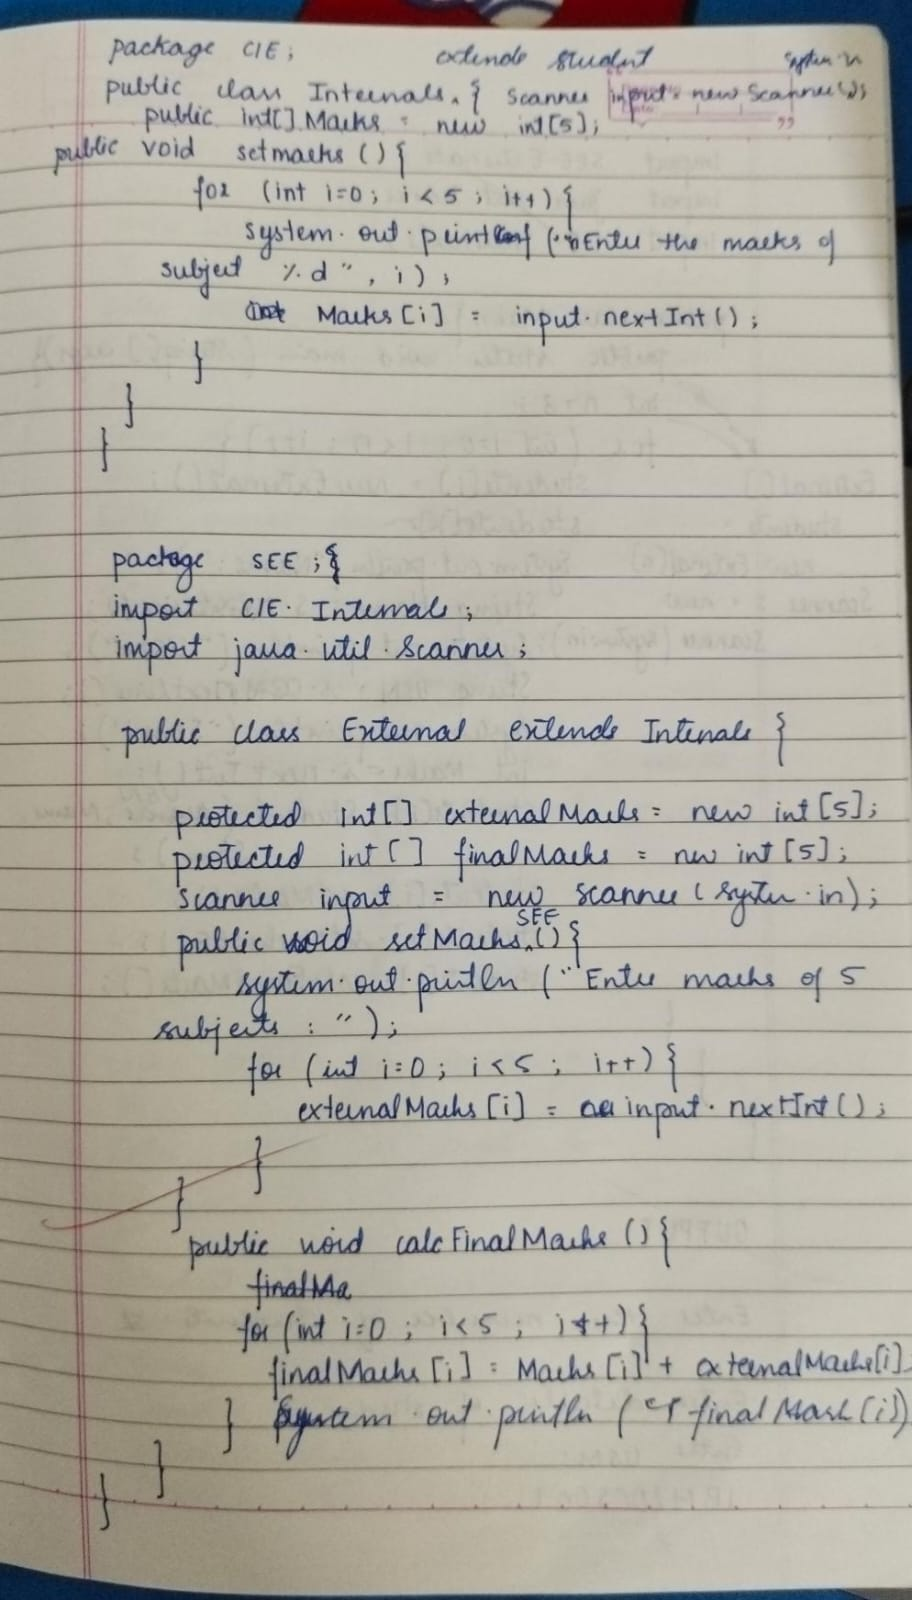 package CIE;
extends student
system.in
public class Internals { Scanner input = new Scanner();
public int[] Marks = new int[5];
public void setmarks () {
for (int i=0; i<5; i++) {
system.out.printf ("\nEnter the marks of
subject %d", i);
Marks[i] = input.nextInt();
}
}
}
package SEE;{
import CIE.Internals;
import java.util.Scanner;
public class External extends Internals {
protected int[] externalMarks = new int[5];
protected int[] finalMarks = new int[5];
Scanner input = new Scanner(system.in);
public void setMarksSEE() {
system.out.println ("Enter marks of 5
subjects : ");
for (int i=0; i<5; i++) {
externalMarks[i] = input.nextInt();
}
}
public void calcFinalMarks () {
finalMa
for (int i=0; i<5; i++) {
finalMarks[i] = Marks[i] + externalMarks[i]
} System.out.println ( finalMark[i])
}
}